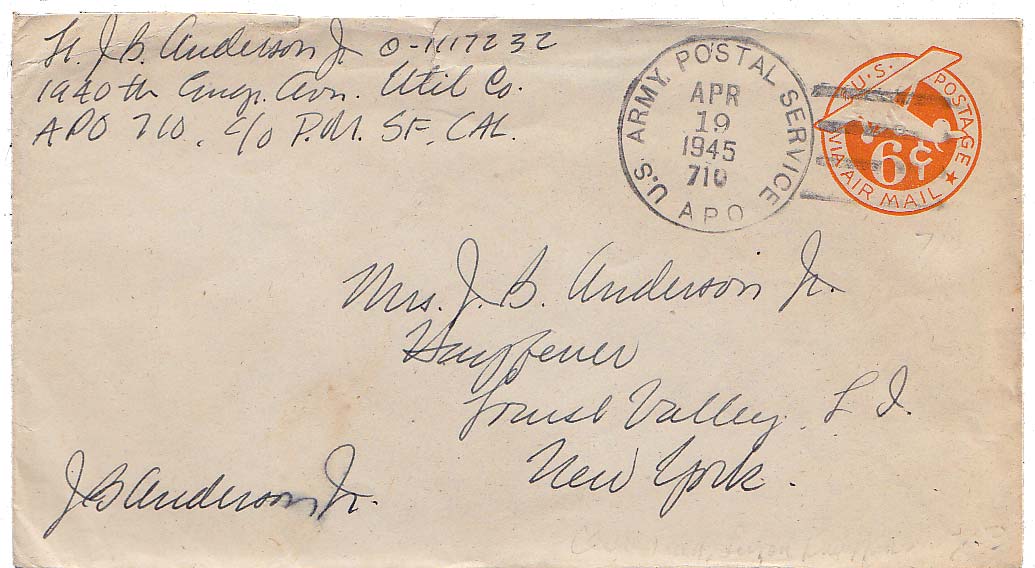 Lt. J. B. Anderson Jr O-1117232
1940th Engr. Avn. Util Co.
APO 710, c/o P.M. SF, CAL.
U.S. ARMY POSTAL SERVICE
APR
19
1945
710
A.P.O.
U.S. POSTAGE
6¢
VIA AIR MAIL
Mrs. J. B. Anderson Jr.
Locust Valley, L I.
New York.
J B Anderson Jr.